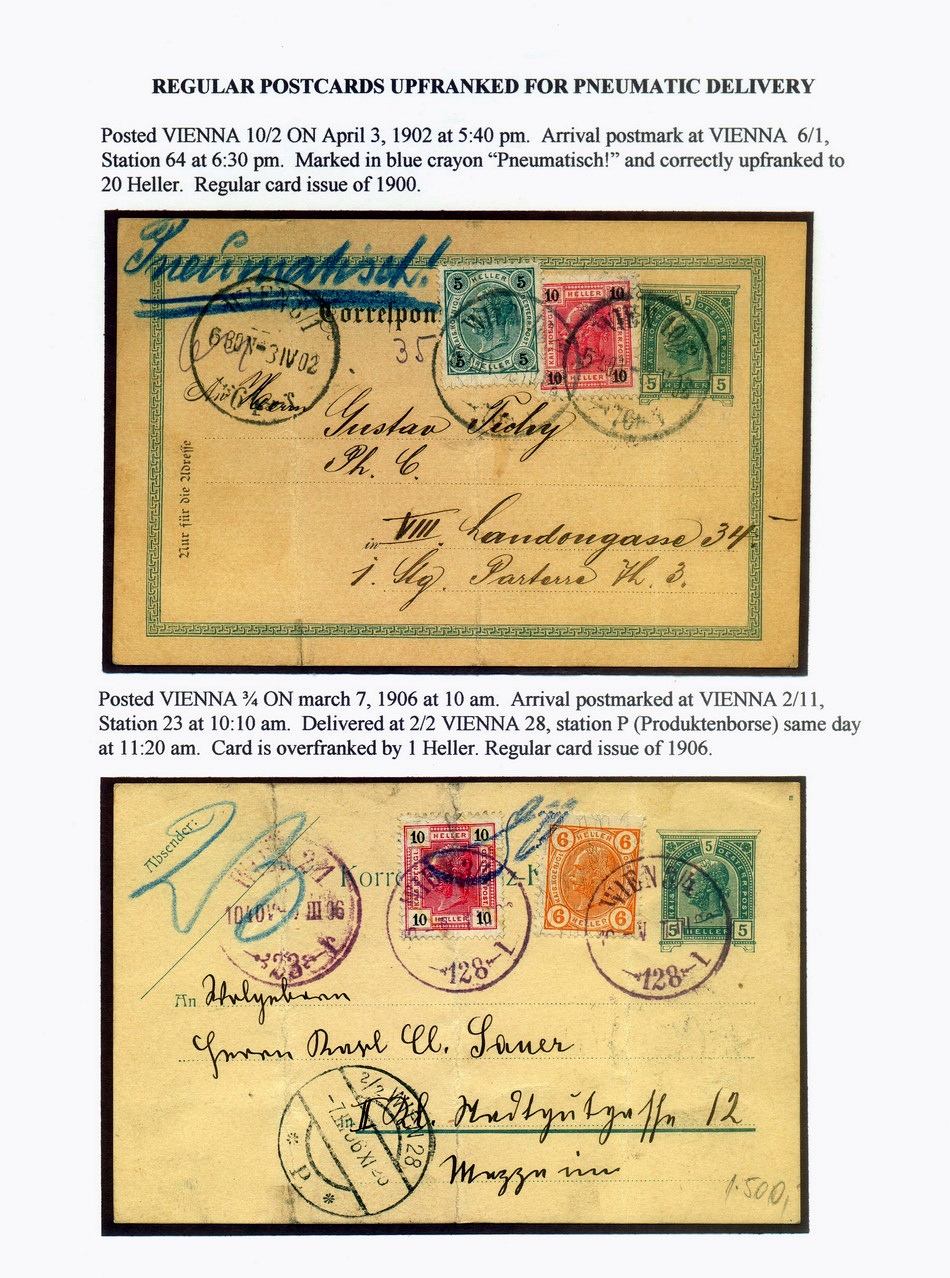 REGULAR POSTCARDS UPFRANKED FOR PNEUMATIC DELIVERY
Posted VIENNA 10/2 ON April 3, 1902 at 5:40 pm. Arrival postmark at VIENNA 6/1,
Station 64 at 6:30 pm. Marked in blue crayon “Pneumatisch!” and correctly upfranked to
20 Heller. Regular card issue of 1900.
Pneumatisch!
Correspon
5 HELLER 5
5 5
10 HELLER 10
10 10
5
5 HELLER 5
WIEN
3 IV 02
WIEN 10/2
35
Herrn
Gustav Tichy
Ph. C.
Nur für die Adresse
in VIII. Landongasse 34
1. Stg. Parterre Th. 3.
Posted VIENNA ¾ ON march 7, 1906 at 10 am. Arrival postmarked at VIENNA 2/11,
Station 23 at 10:10 am. Delivered at 2/2 VIENNA 28, station P (Produktenborse) same day
at 11:20 am. Card is overfranked by 1 Heller. Regular card issue of 1906.
Absender:
23
WIEN
1040V III 06
23
Korre z-K
10 HELLER 10
10 10
128-1
6 HELLER 6
6 HELLER 6
WIEN 3/4
128-1
5
5 HELLER 5
An Wolgeborn
Herrn Karl Cl. Sauer
2/2 WIEN 28
P
Stadtgutgasse 12
Mezzanin
1.500,